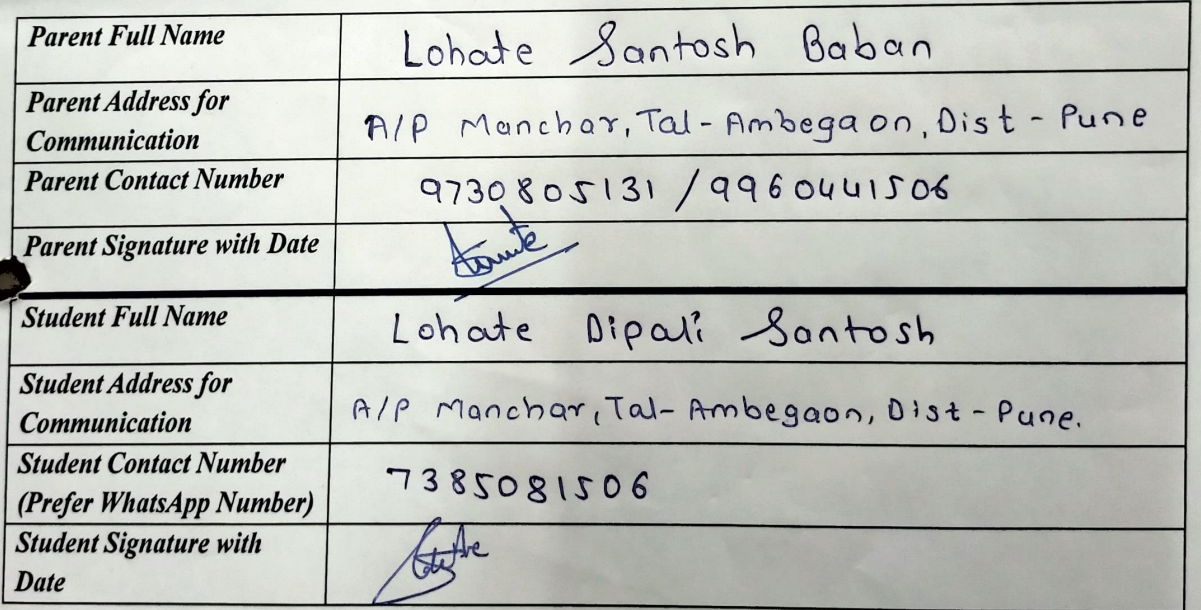 Parent Full Name
Lohate Santosh Baban
Parent Address for
Communication
A/P Manchar, Tal-Ambegaon, Dist - Pune
Parent Contact Number
9730805131 / 9960441506
Parent Signature with Date
Student Full Name
Lohate Dipali Santosh
Student Address for
Communication
A/P Manchar, Tal-Ambegaon, Dist - Pune.
Student Contact Number
(Prefer WhatsApp Number)
7385081506
Student Signature with
Date